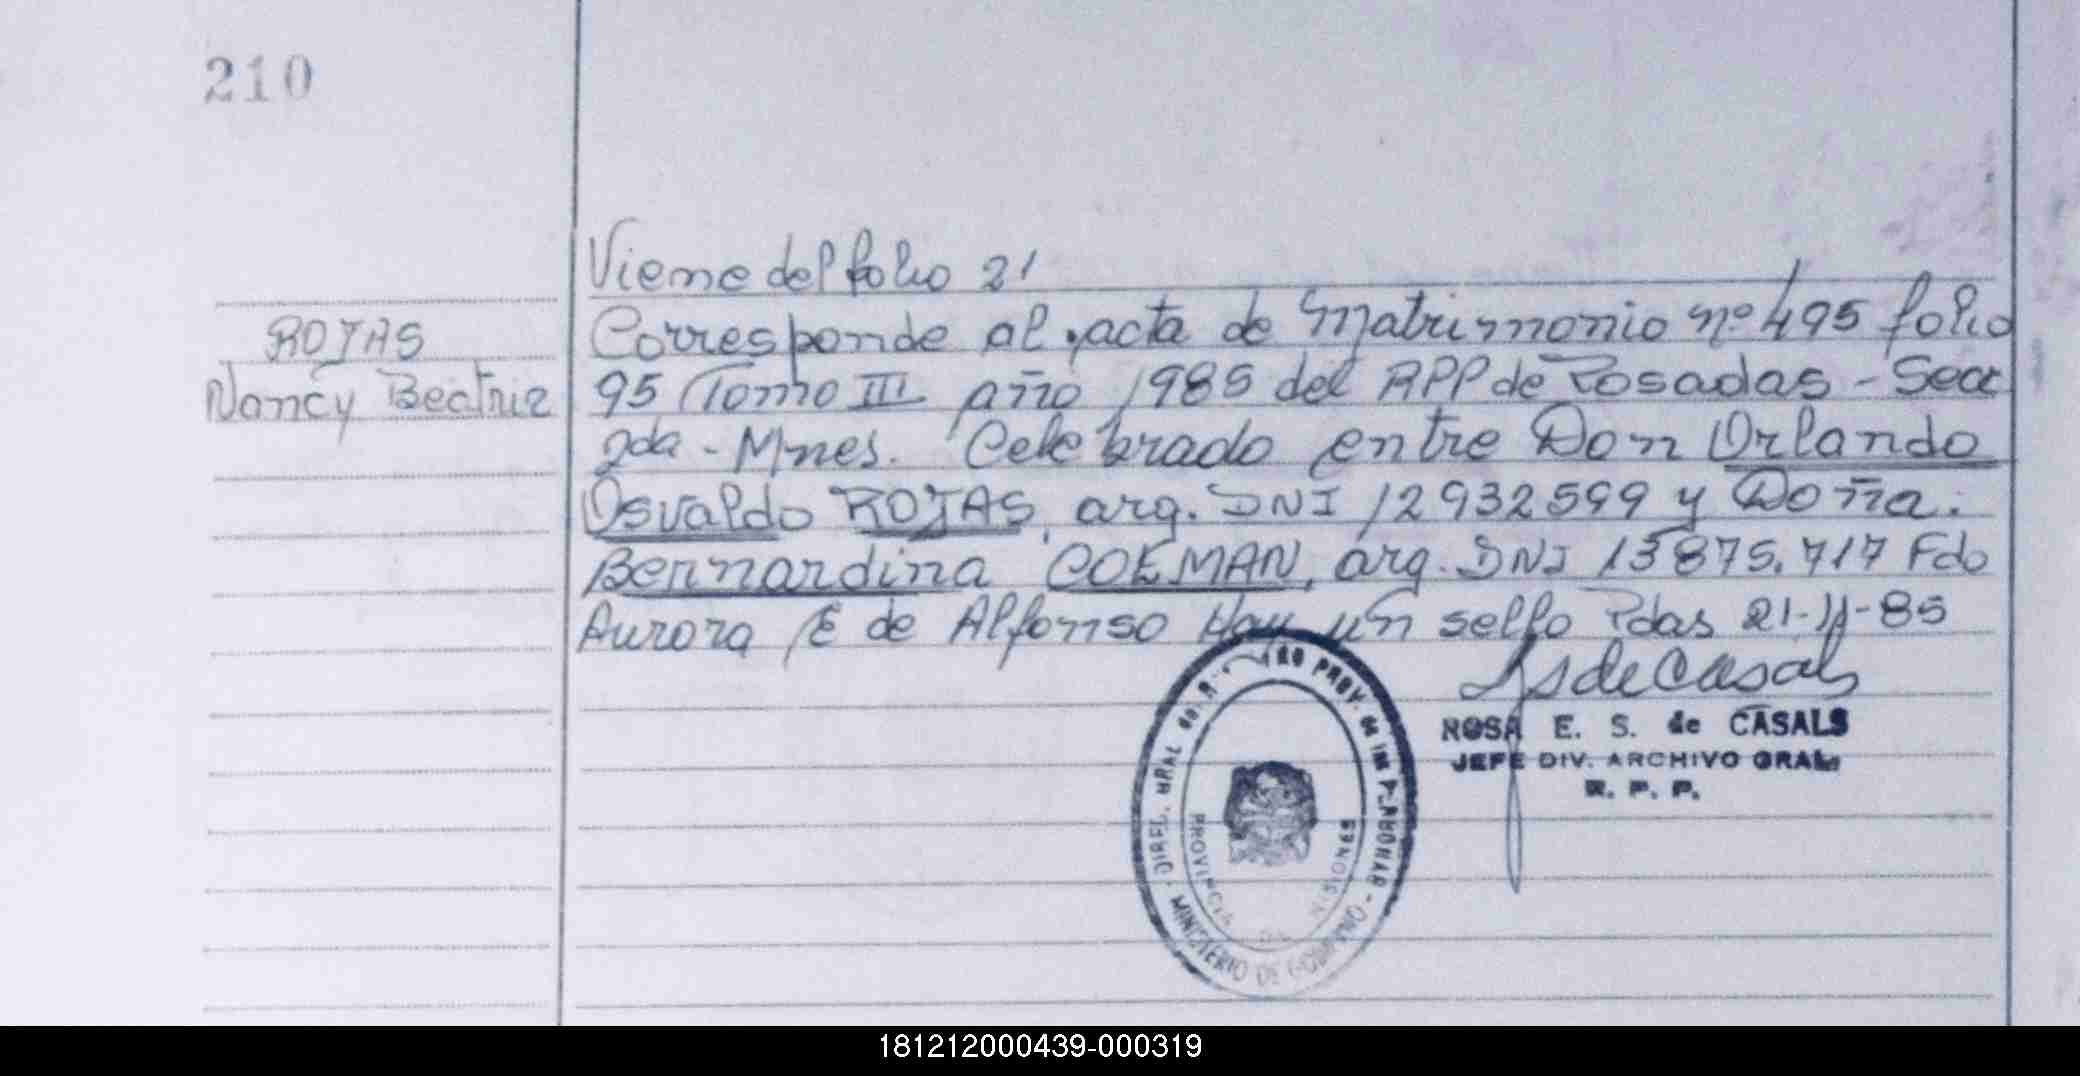 210
Viene del folio 21
ROJAS
Nancy Beatriz
Corresponde al acta de Matrimonio nº 495 folio
95 Tomo III año 1985 del RPP de Posadas - Secc
2da - Mnes. Celebrado entre Don Orlando
Osvaldo ROJAS, arg. DNI 12932599 y Doña.
Bernardina COEMAN, arg. DNI 13875.717 Fdo
Aurora E de Alfonso Hay un sello Pdas 21-11-85
S de Casals
ROSA E. S. de CASALS
JEFE DIV. ARCHIVO GRAL
R. P. P.
PROV. de las
PROVINCIA MISIONES
MINISTERIO DE GOBIERNO
181212000439-000319